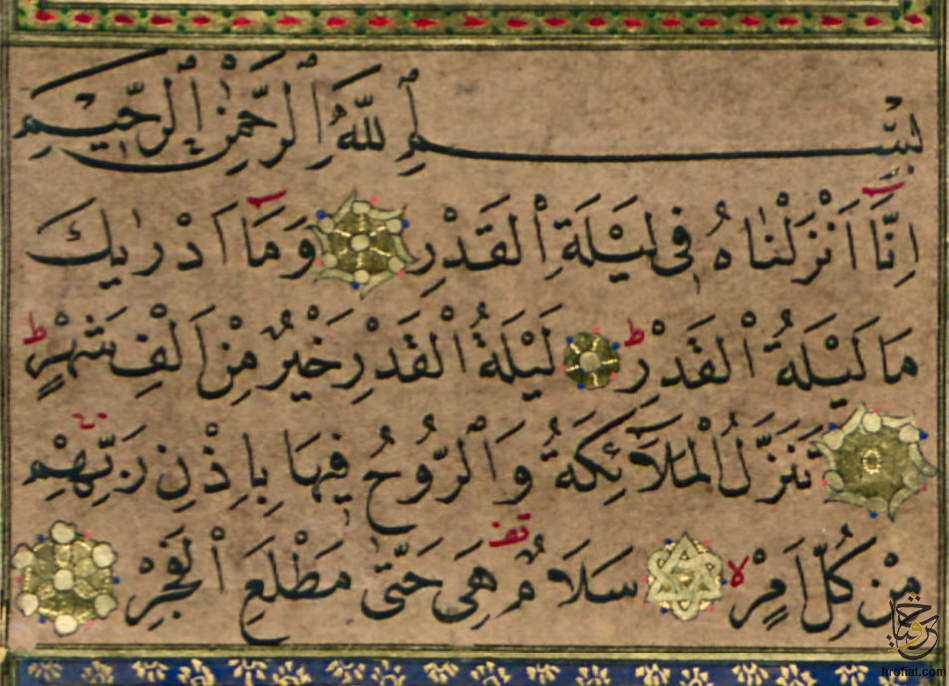 بِسْمِ اللّٰهِ الرَّحْمٰنِ الرَّحِيمِ
اِنَّا اَنْزَلْنَاهُ فِى لَيْلَةِ الْقَدْرِ وَمَا اَدْرٰيكَ
مَا لَيْلَةُ الْقَدْرِ ط لَيْلَةُ الْقَدْرِ خَيْرٌ مِنْ اَلْفِ شَهْرٍ ط
تَنَزَّلُ الْمَلَآئِكَةُ وَالرُّوحُ فِيهَا بِاِذْنِ رَبِّهِمْ
مِنْ كُلِّ اَمْرٍ لا سَلَامٌ قف هِىَ حَتّٰى مَطْلَعِ الْفَجْرِ
hrofiat.com